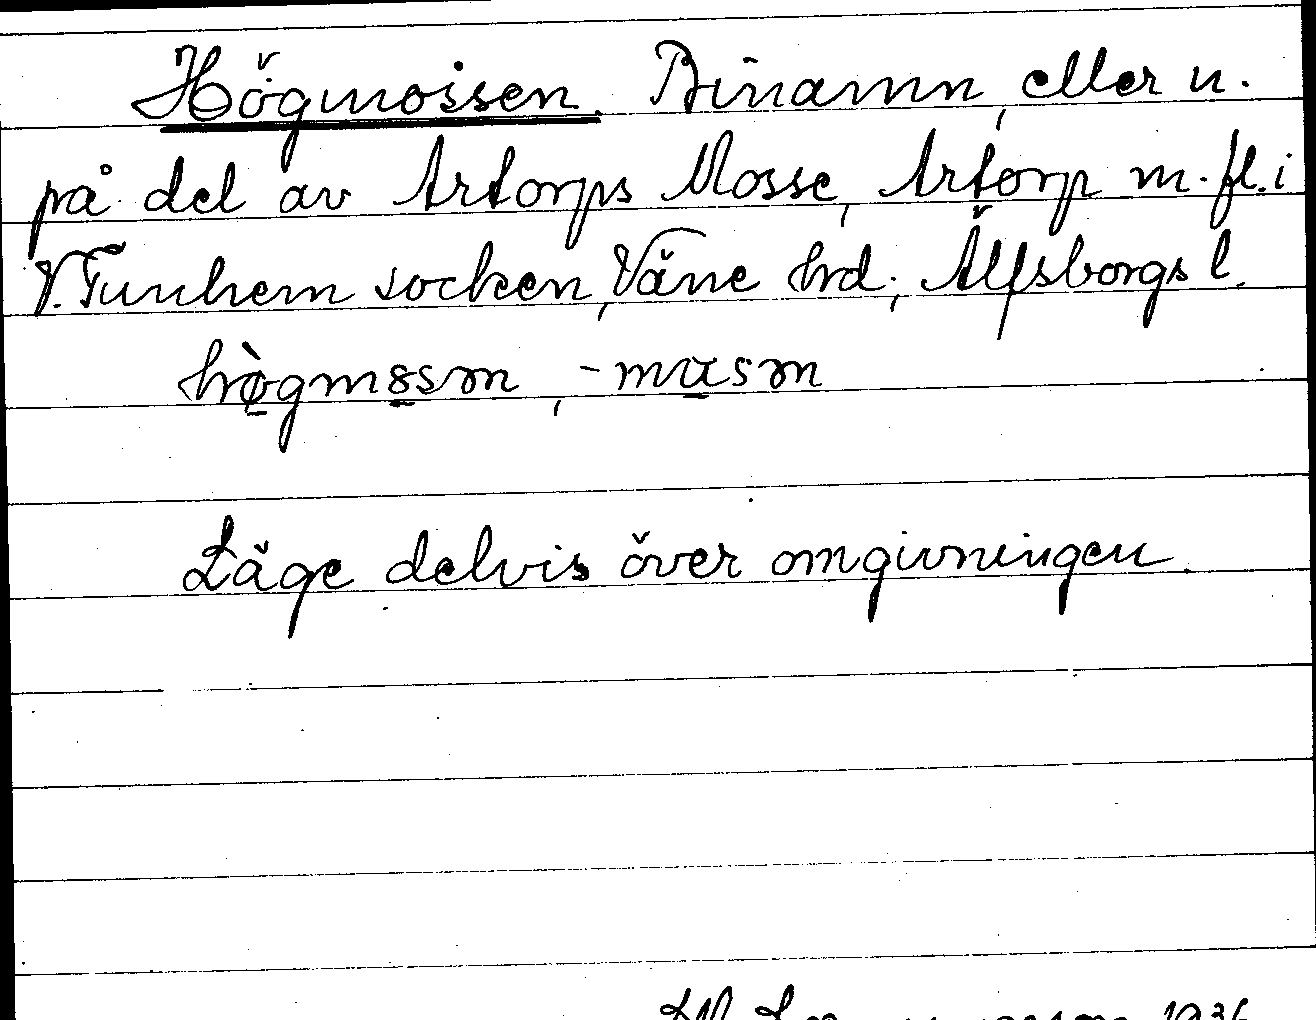 Högmossen. Binamn, eller n.
på del av Artorps Mosse, Artorp m. fl. i
V. Tunhem socken, Väne hrd., Älfsborgs l.
hø̀gmꝏsm, -mɑsm
Läge delvis över omgivningen.
1936